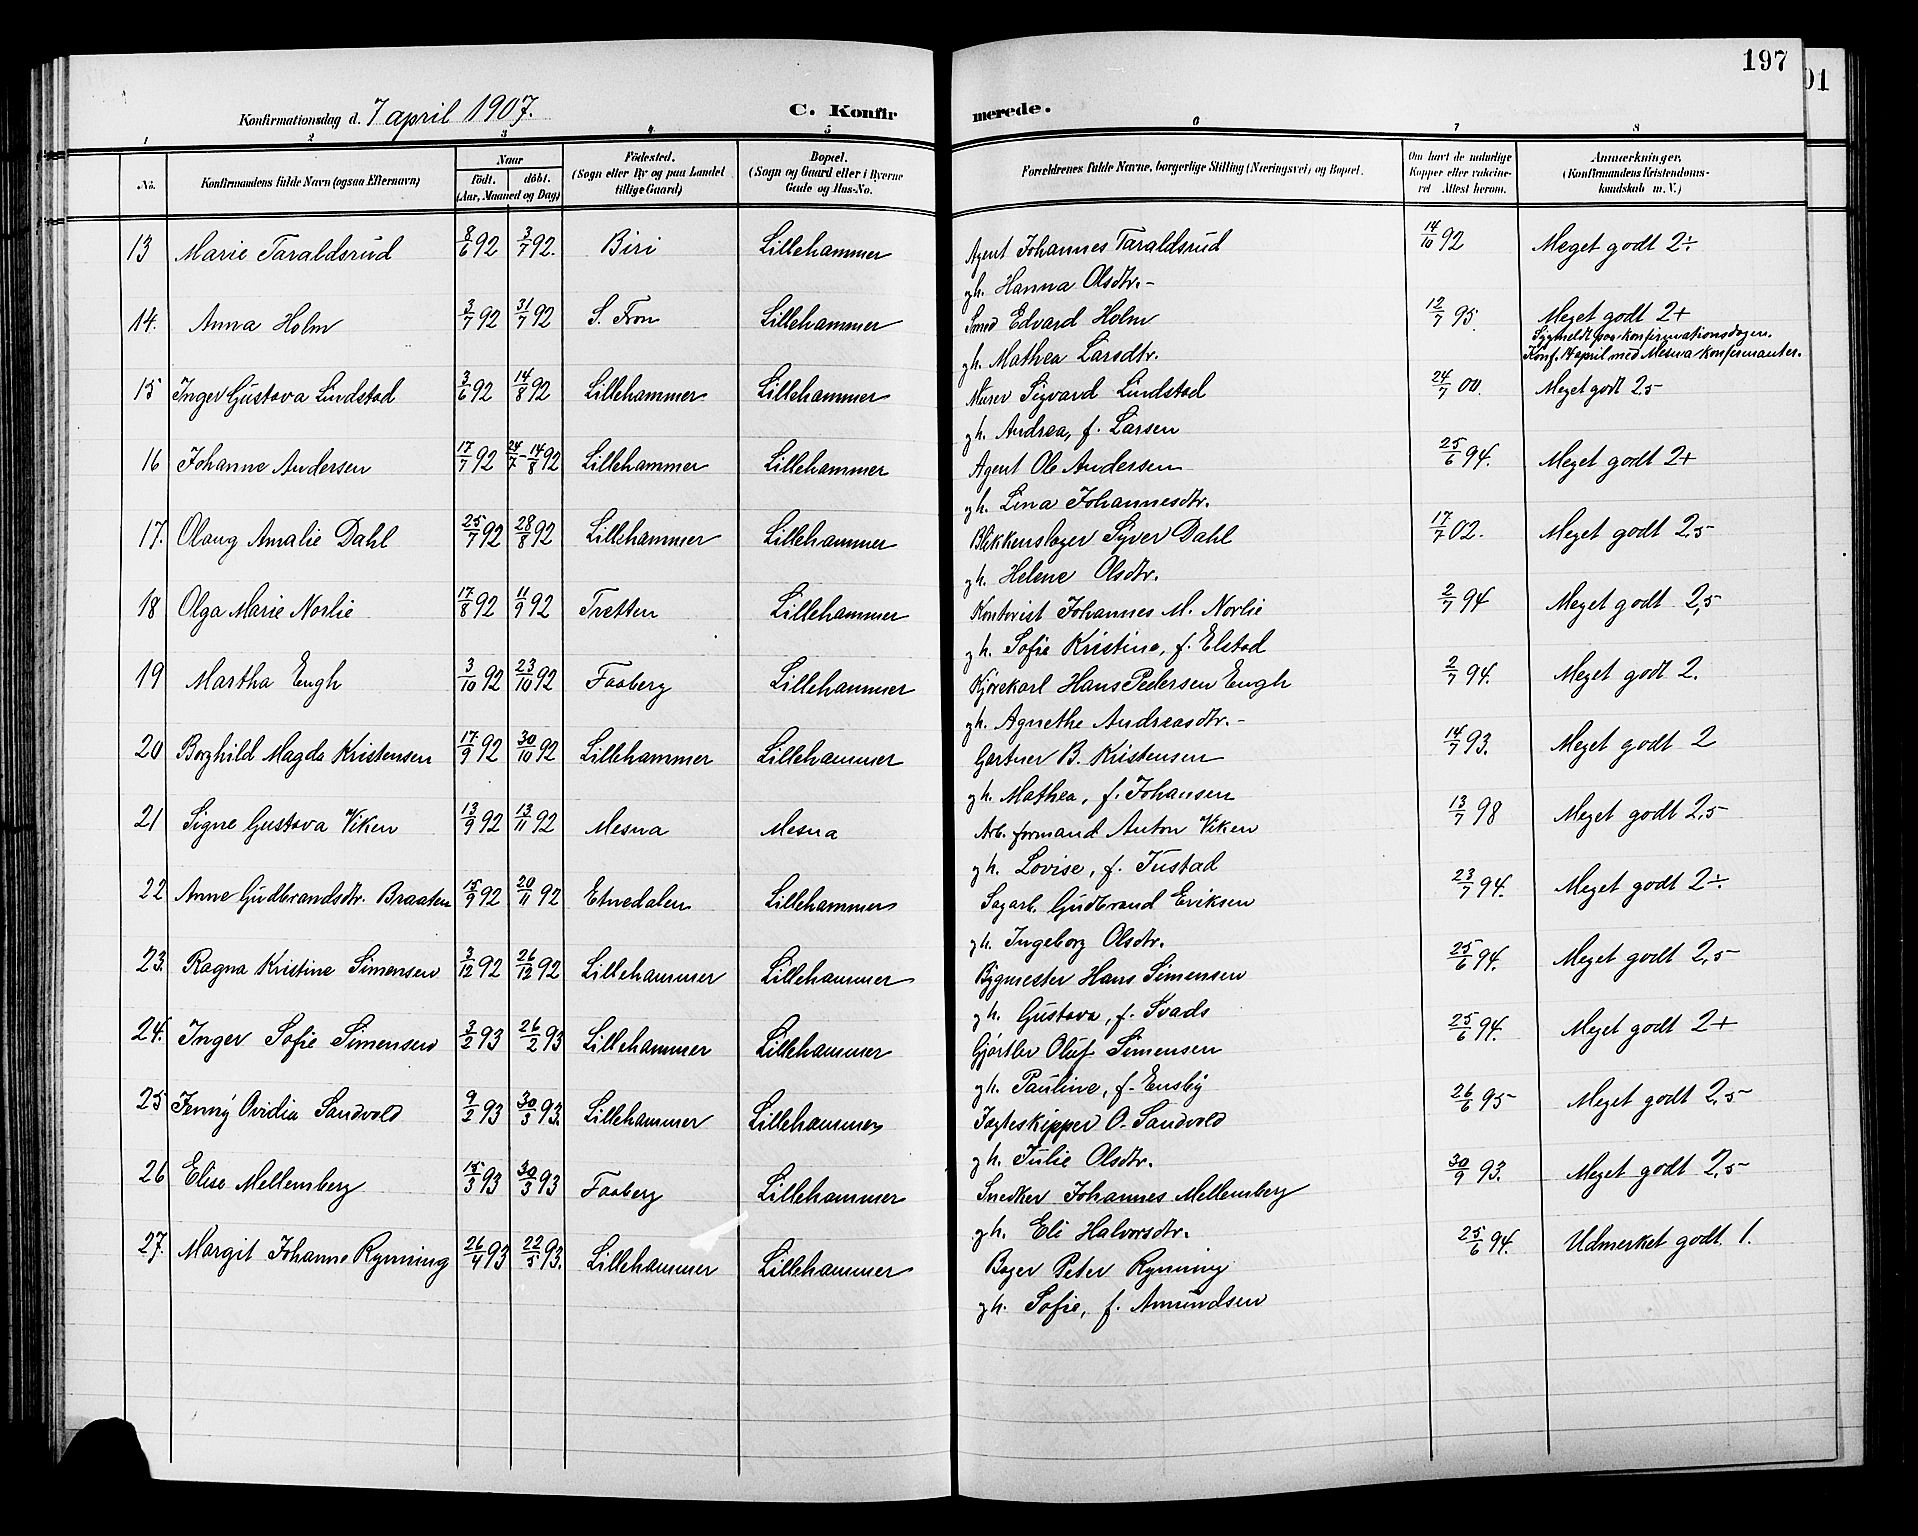 197
01
Konfirmationsdag d. 7 april 1907. C. Konfirmerede.
1 2 3 4 5 6 7 8
No. Konfirmandens fulde Navn (ogsaa Efternavn) Naar Født. døbt. (Aar, Maaned og Dag) Fødested. (Sogn eller By og paa Landet tillige Gaard) Bopæl. (Sogn og Gaard eller i Byerne Gade og Hus-No. Forældrenes fulde Navne, borgerlige Stilling (Næringsvei) og Bopæl. Om havt de naturlige Kopper eller vaccineret Attest herom. Anmærkninger. (Konfirmandens Kristendomskundskab m. V.)
13 Marie Taraldsrud 8/6 92 3/7 92. Biri Lillehammer Agent Johannes Taraldsrud 14/10 92 Meget godt 2÷
gh. Hanna Olsdtr.-
14. Anna Holm 3/7 92 31/7 92 S. Fron Lillehammer Smed Edvard Holm 12/7 95. Meget godt 2+
Sygmeldt paa konfirmationsdagen.
gh. Mathea Larsdtr. Konf. 14 april med Mesna konfirmanter.
15 Inger Gustava Lindstad 3/6 92 14/8 92 Lillehammer Lillehammer Murer Sigvard Lindstad 24/7 00. Meget godt 2,5
gh. Andrea, f. Larsen
16 Johanne Andersen 17/7 92 24/7-14/8 92 Lillehammer Lillehammer Agent Ole Andersen 25/6 94. Meget godt 2+
gh. Lina Johannesdtr.
17. Olaug Amalie Dahl 25/7 92 28/8 92 Lillehammer Lillehammer Blikkenslager Syver Dahl 17/7 02. Meget godt 2,5
gh. Helene Olsdtr.
18 Olga Marie Norlie 17/8 92 11/9 92 Tretten Lillehammer Kontorist Johannes M. Norlie 2/7 94 Meget godt 2,5
gh. Sofie Kristine, f. Elstad
19 Martha Engh 3/10 92 23/10 92 Faaberg Lillehammer Kjørekarl Hans Pedersen Engh 2/7 94. Meget godt 2.
gh. Agnethe Andreasdtr.-
20 Borghild Magda Kristensen 17/9 92 30/10 92 Lillehammer Lillehammer Gartner B. Kristensen 14/7 93. Meget godt 2
gh. Mathea, f. Johansen
21 Signe Gustava Viken 13/9 92 13/11 92 Mesna Mesna Arb. formand Anton Viken 13/7 98 Meget godt 2,5
gh. Lovise, f. Justad
22 Anne Gudbrandsdtr. Braaten 15/9 92 20/11 92 Etnedalen Lillehammer Sagarb. Gudbrand Eriksen 23/7 94. Meget godt 2÷
gh. Ingeborg Olsdtr.
23. Ragna Kristine Simensen 3/12 92 26/12 92 Lillehammer Lillehammer Bygmester Hans Simensen 25/6 94. Meget godt 2,5
gh. Gustava, f. Svads
24. Inger Sofie Simensen 3/2 93 26/2 93 Lillehammer Lillehammer Gjørtler Oluf Simensen 25/6 94. Meget godt 2+
gh. Pauline, f. Ensby
25 Jenny Ovidia Sandvold 9/2 93 30/3 93. Lillehammer Lillehammer Jagteskipper O. Sandvold 26/6 95 Meget godt 2,5
gh. Julie Olsdtr.
26 Elise Mellemberg 15/3 93 30/3 93 Faaberg Lillehammer Snedker Johannes Mellemberg 30/9 93. Meget godt 2,5
gh. Eli Halvorsdtr.
27. Margit Johanne Rynning 26/4 93 22/5 93. Lillehammer Lillehammer Bager Peter Rynning 25/6 94. Udmerket godt 1.
gh. Sofie, f. Amundsen